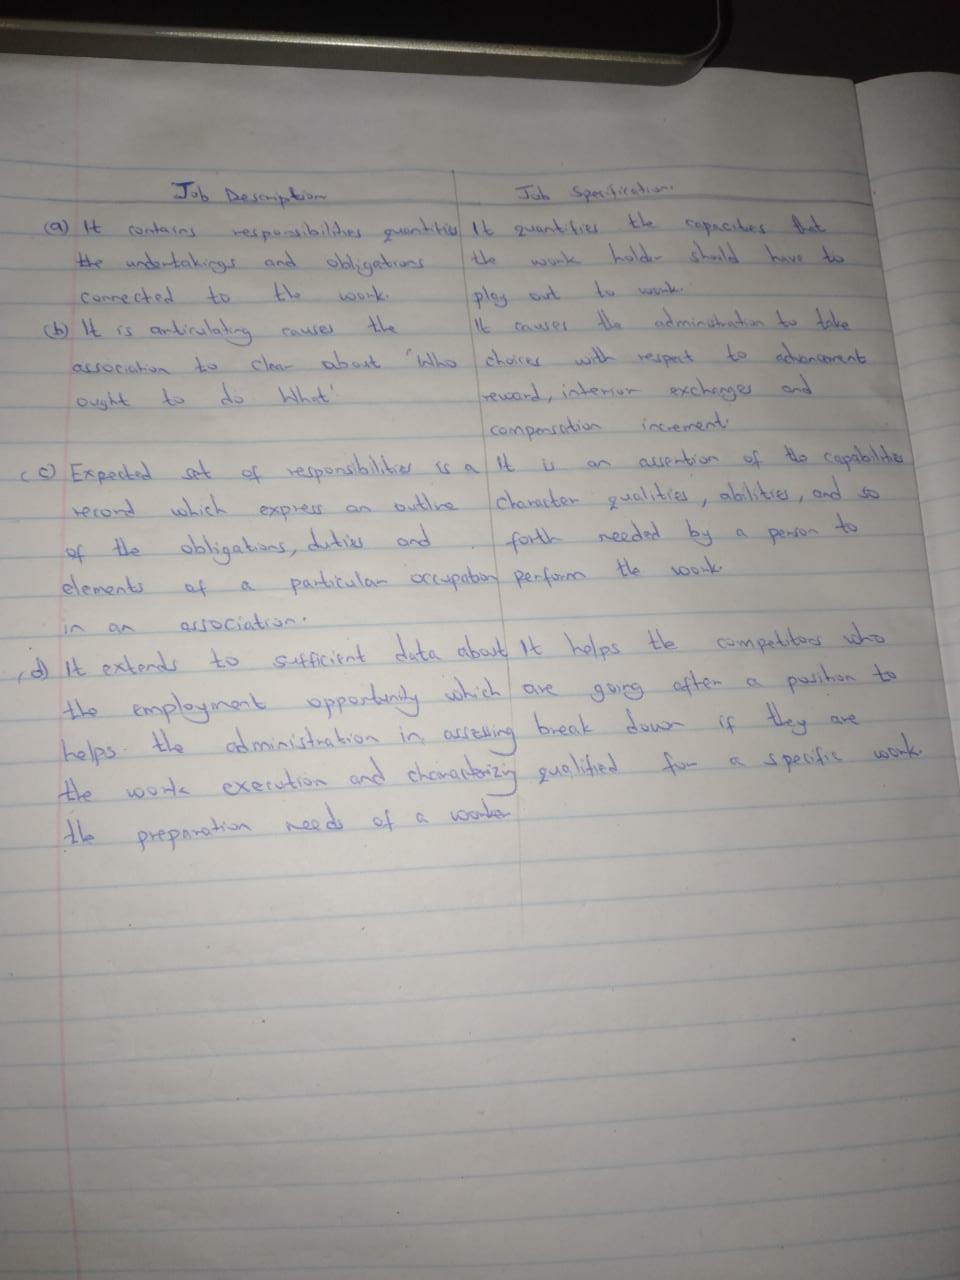 Job Description
(a) It contains responsibilities quantities
the undertakings and obligations
connected to the work.
(b) It is articulating causes the
association to clear about 'Who
ought to do What'
(c) Expected set of responsibilities is a
record which express an outline
of the obligations, duties and
elements of a particular occupation
in an association.
(d) It extends to sufficient data about
the employment opportunity which
helps the administration in assessing
the work execution and characterizing
the preparation needs of a worker
Job Specification.
It quantifies the capacities that
the work holder should have to
play out to work.
It causes the administration to take
choices with respect to advancement
reward, interior exchanges and
compensation increment.
It is an assention of the capabilities
character qualities, abilities, and so
forth needed by a person to
perform the work.
It helps the competitors who
are going after a position to
break down if they are
qualified for a specific work.